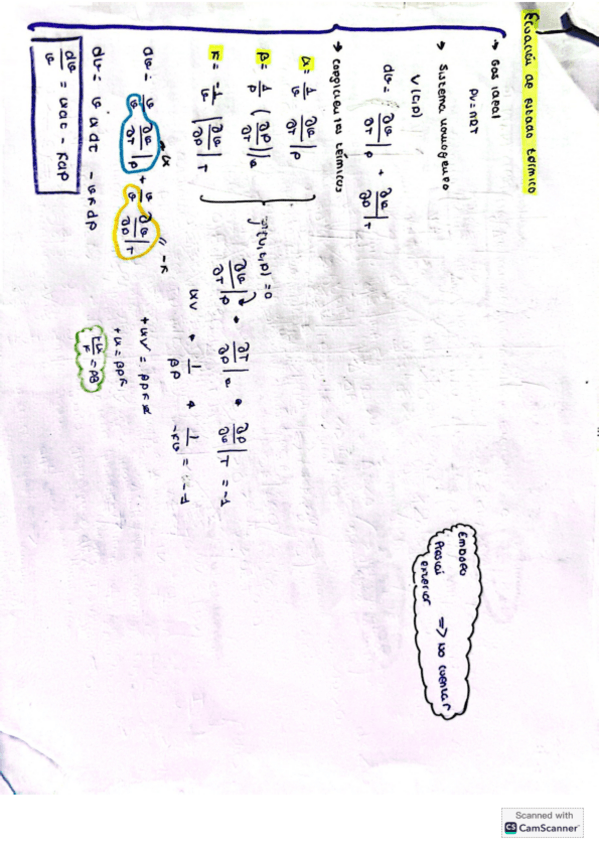 Ecuación de estado térmico
→ Gas ideal
PV = nRT
→ Sistema homogéneo
V(T,P)
dv = ∂v/∂T|P + ∂v/∂P|T
→ coeficientes térmicos
α = 1/v ∂v/∂T|P
β = 1/P (∂P/∂T)|v
κ = -1/v |∂v/∂P|T
f(V,T,P) = 0
∂v/∂T|P · ∂T/∂P|v · ∂P/∂v|T = -1
αv · 1/βP · 1/-κv = -1
+αv = βPκv
+α = βPκ
+α/κ = Pβ
dv = v/v ∂v/∂T|P + v/v ∂v/∂P|T
α
"-κ
dv = vαdT - vκdP
dv/v = αdT - κdP
Embolo
Presión
exterior
=> no cuentan
Scanned with
CS CamScanner